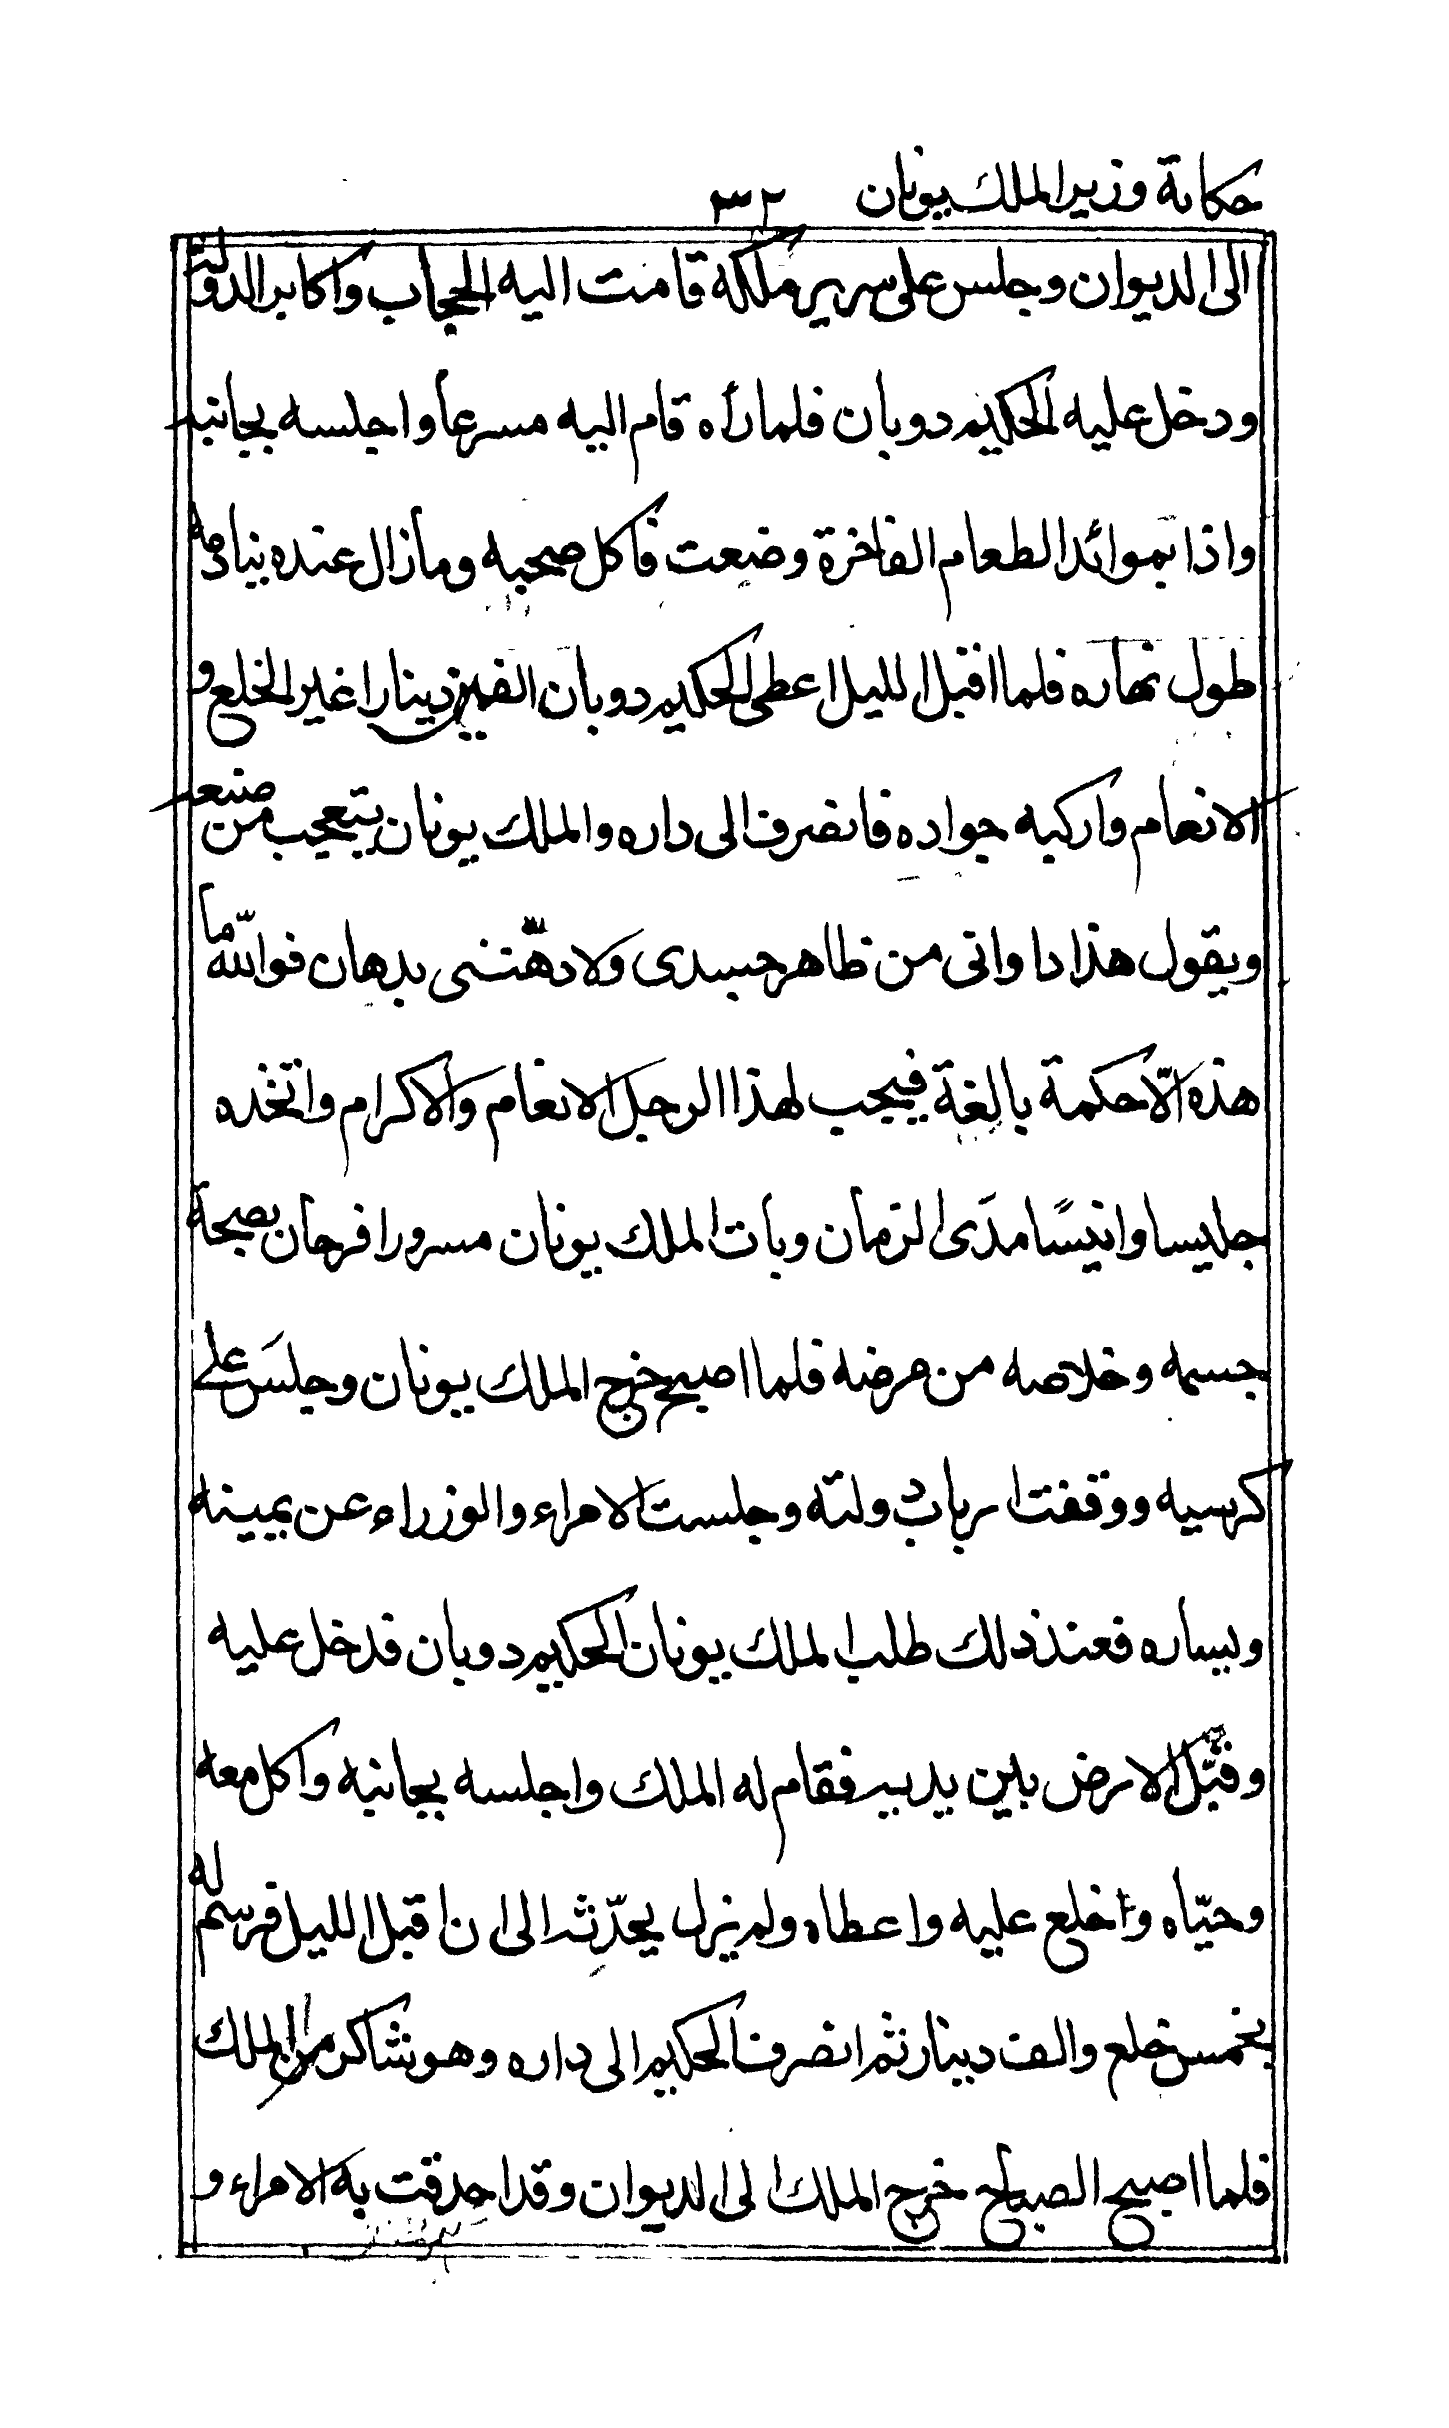 حكاية وزير الملك يونان ٣٢
الى الديوان وجلس على سرير مملكه قامت اليه الحجاب واكابر الدولة
ودخل عليه الحكيم دوبان فلما رأه قام اليه مسرعاً واجلسه بجانبه
واذا بموائد الطعام الفاخرة وضعت فاكل صحبه ومازال عنده ينادمه
طول نهاره فلما اقبل الليل اعطى الحكيم دوبان الفين دينارا غير الخلع و
الانعام واركبه جواده فانصرف الى داره والملك يونان يتعجب من صنعه
ويقول هذا داوانى من ظاهر جسدى ولا دهّننى بدهان فوالله ما
هذه الّا حكمة بالغة فيجب لهذا الرجل الانعام والاكرام واتخذه
جليسا وانيسًا مدَى الزمان وبات الملك يونان مسرورا فرحان بصحة
جسمه وخلاصه من مرضه فلما اصبح خرج الملك يونان وجلس على
كرسيه ووقفت ارباب دولته وجلست الامراء والوزراء عن يمينه
ويساره فعند ذلك طلب الملك يونان الحكيم دوبان فدخل عليه
وقبّل الارض بين يديه فقام له الملك واجلسه بجانبه واكل معه
وحيّاه واخلع عليه واعطاه ولم يزل يحدّثه الى ان اقبل الليل فرسم له
بخمس خلع والف دينار ثم انصرف الحكيم الى داره وهو شاكر من الملك
فلما اصبح الصباح خرج الملك الى الديوان وقد احدقت به الامراء و